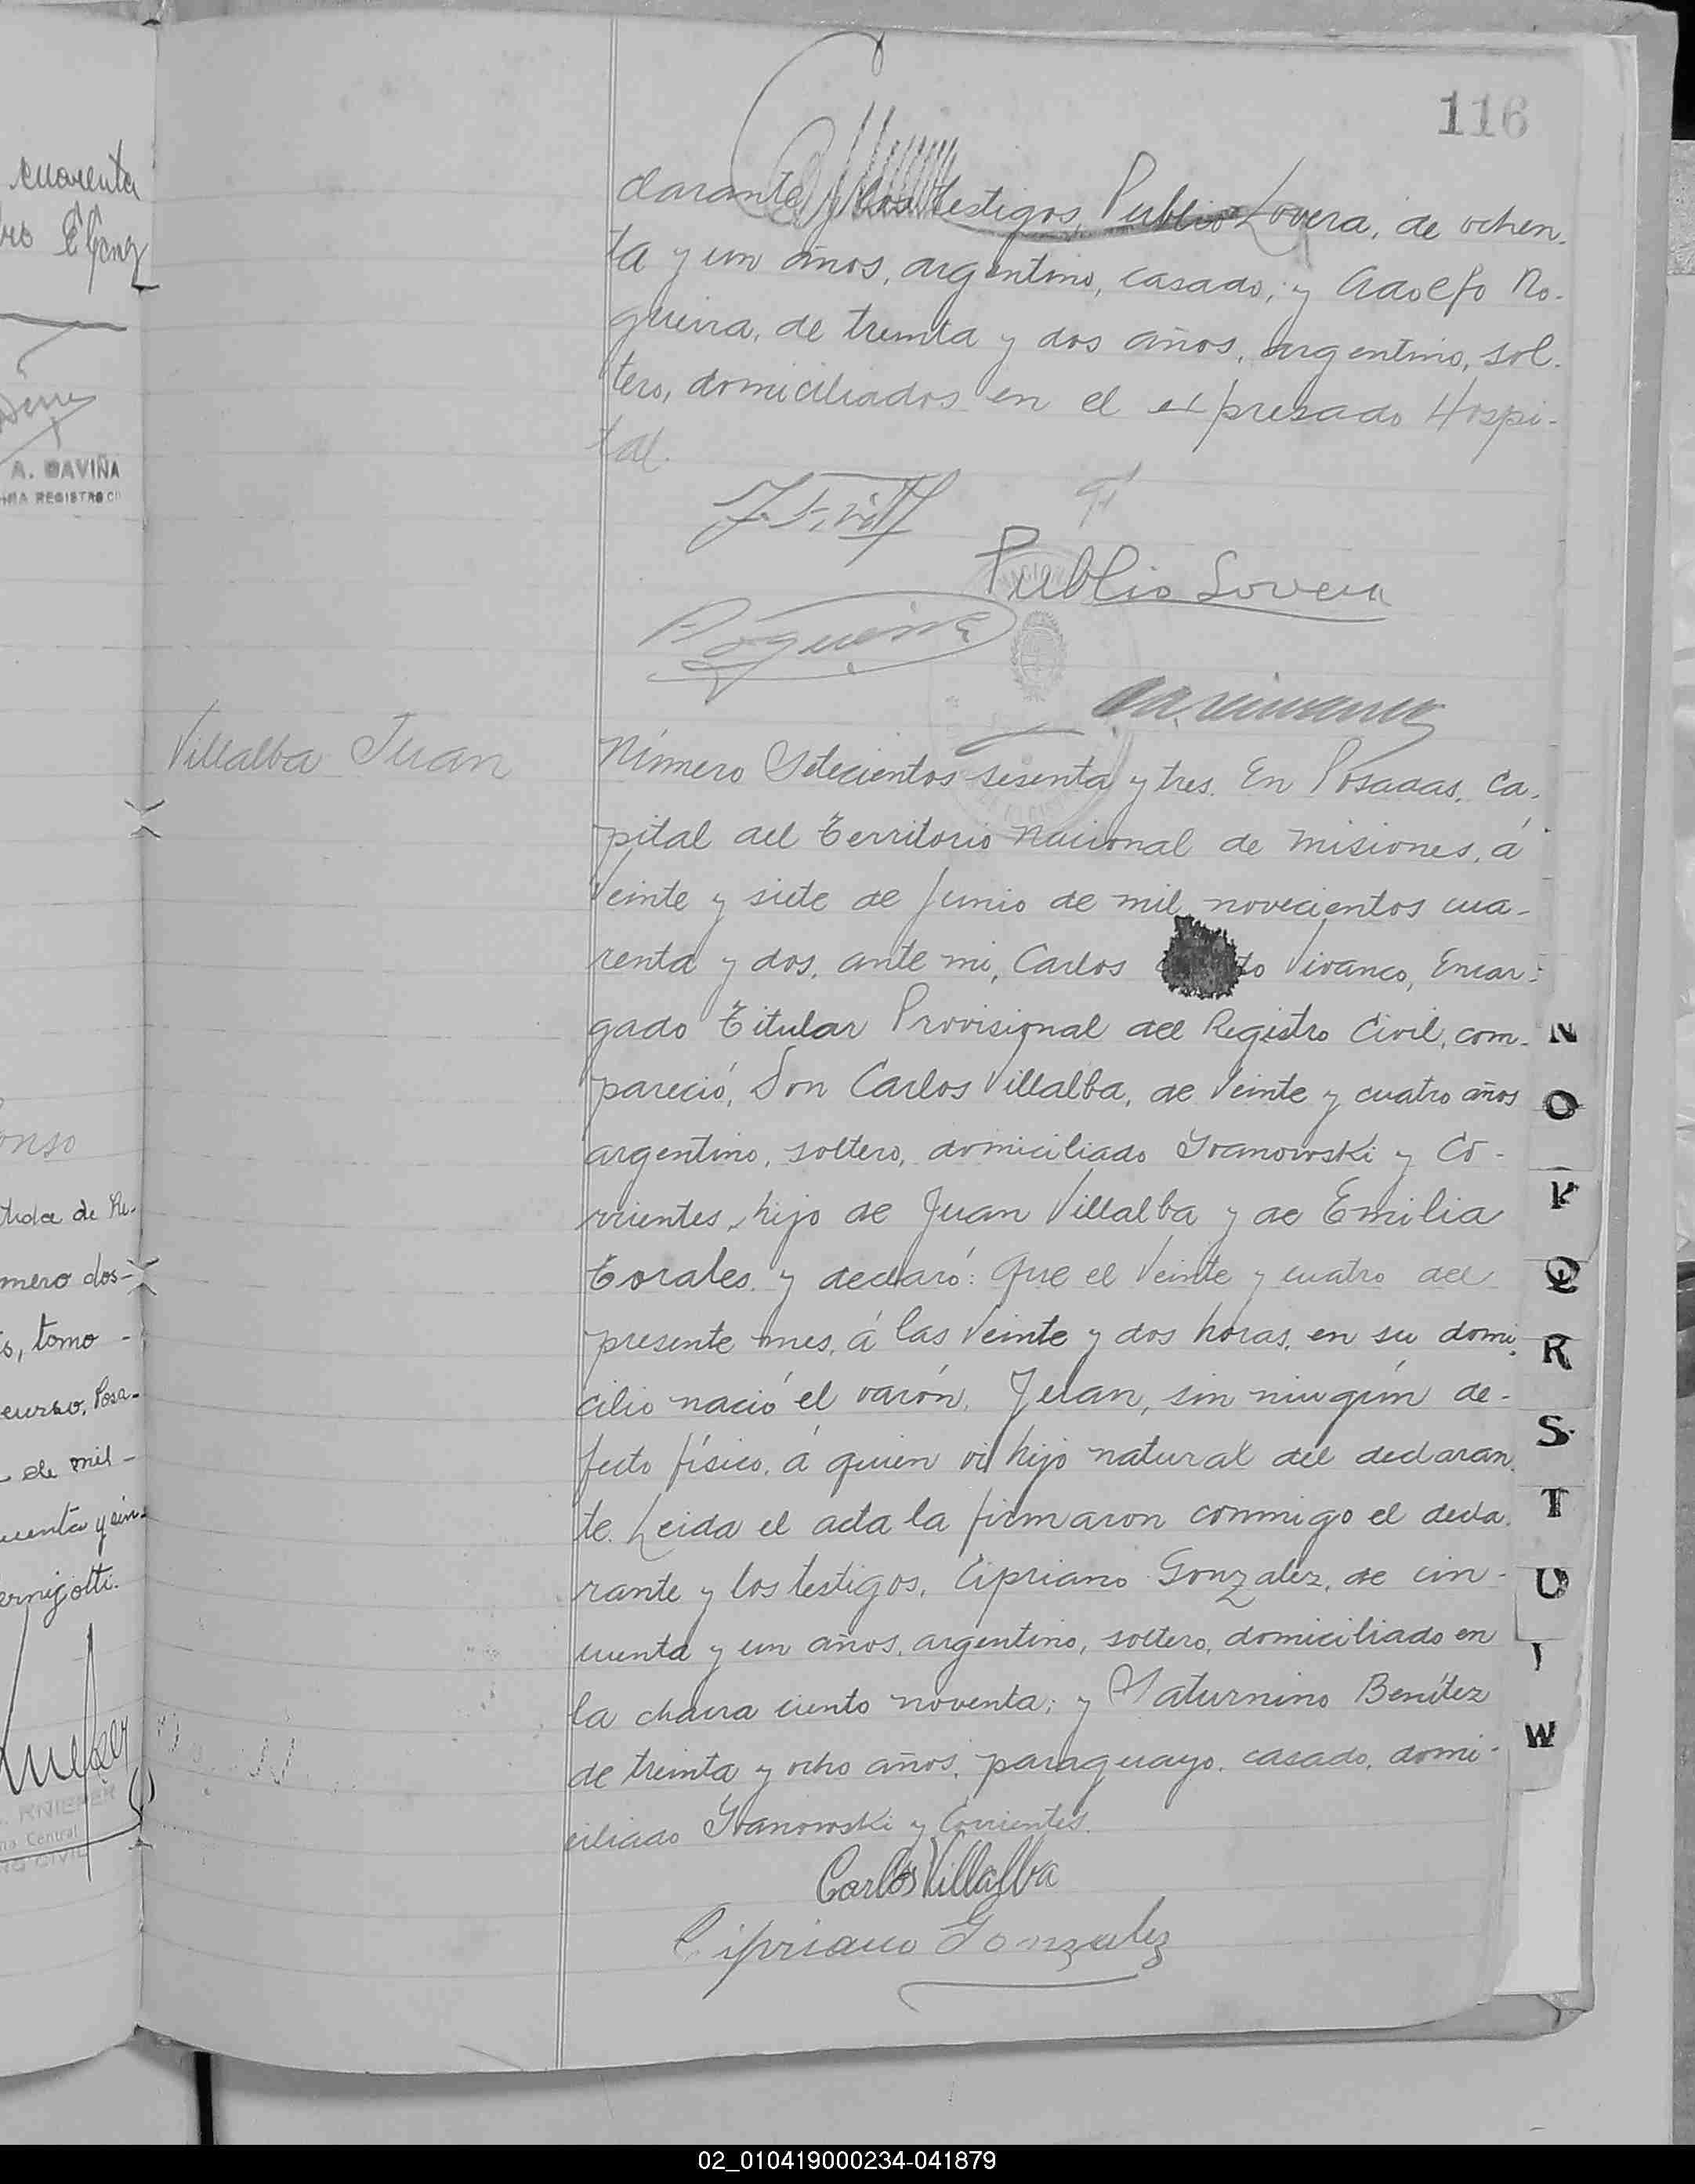 116
cuarenta
A. DAVIÑA
REGISTRO CI
clarante y los testigos, Publio Lovera, de ochen-
ta y un años, argentino, casado, y Adolfo No-
gueira, de treinta y dos años, argentino, sol-
tero, domiciliados en el expresado Hospi-
tal.
Publio Lovera
Villalba Juan
Número Setecientos sesenta y tres. En Posadas, Ca-
pital del Territorio Nacional de Misiones, á
Veinte y siete de Junio de mil novecientos cua-
renta y dos, ante mi, Carlos to Vivanco, Encar-
gado Titular Provisional del Registro Civil, com-
pareció, Don Carlos Villalba, de Veinte y cuatro años
argentino, soltero, domiciliado Ivanowski y Co-
rrientes, hijo de Juan Villalba y de Emilia
Torales, y declaró: Que el Veinte y cuatro del
presente mes, á las Veinte y dos horas, en su domi-
cilio nació el varón, Juan, sin ningún de-
fecto físico, á quien vi hijo natural del declaran-
te. Leida el acta la firmaron conmigo el decla-
rante y los testigos, Cipriano Gonzalez, de cin-
cuenta y un años, argentino, soltero, domiciliado en
la chacra ciento noventa; y Saturnino Benítez
de treinta y ocho años, paraguayo, casado, domi-
ciliado Ivanowski y Corrientes.
Carlos Villalba
Cipriano Gonzalez
onso
mero dos-
s, tomo -
curso, Posa-
de mil -
uenta y cin-
KNIEPER
na Central
CIVIL
N
O
P
Q
R
S
T
U
W
02_010419000234-041879